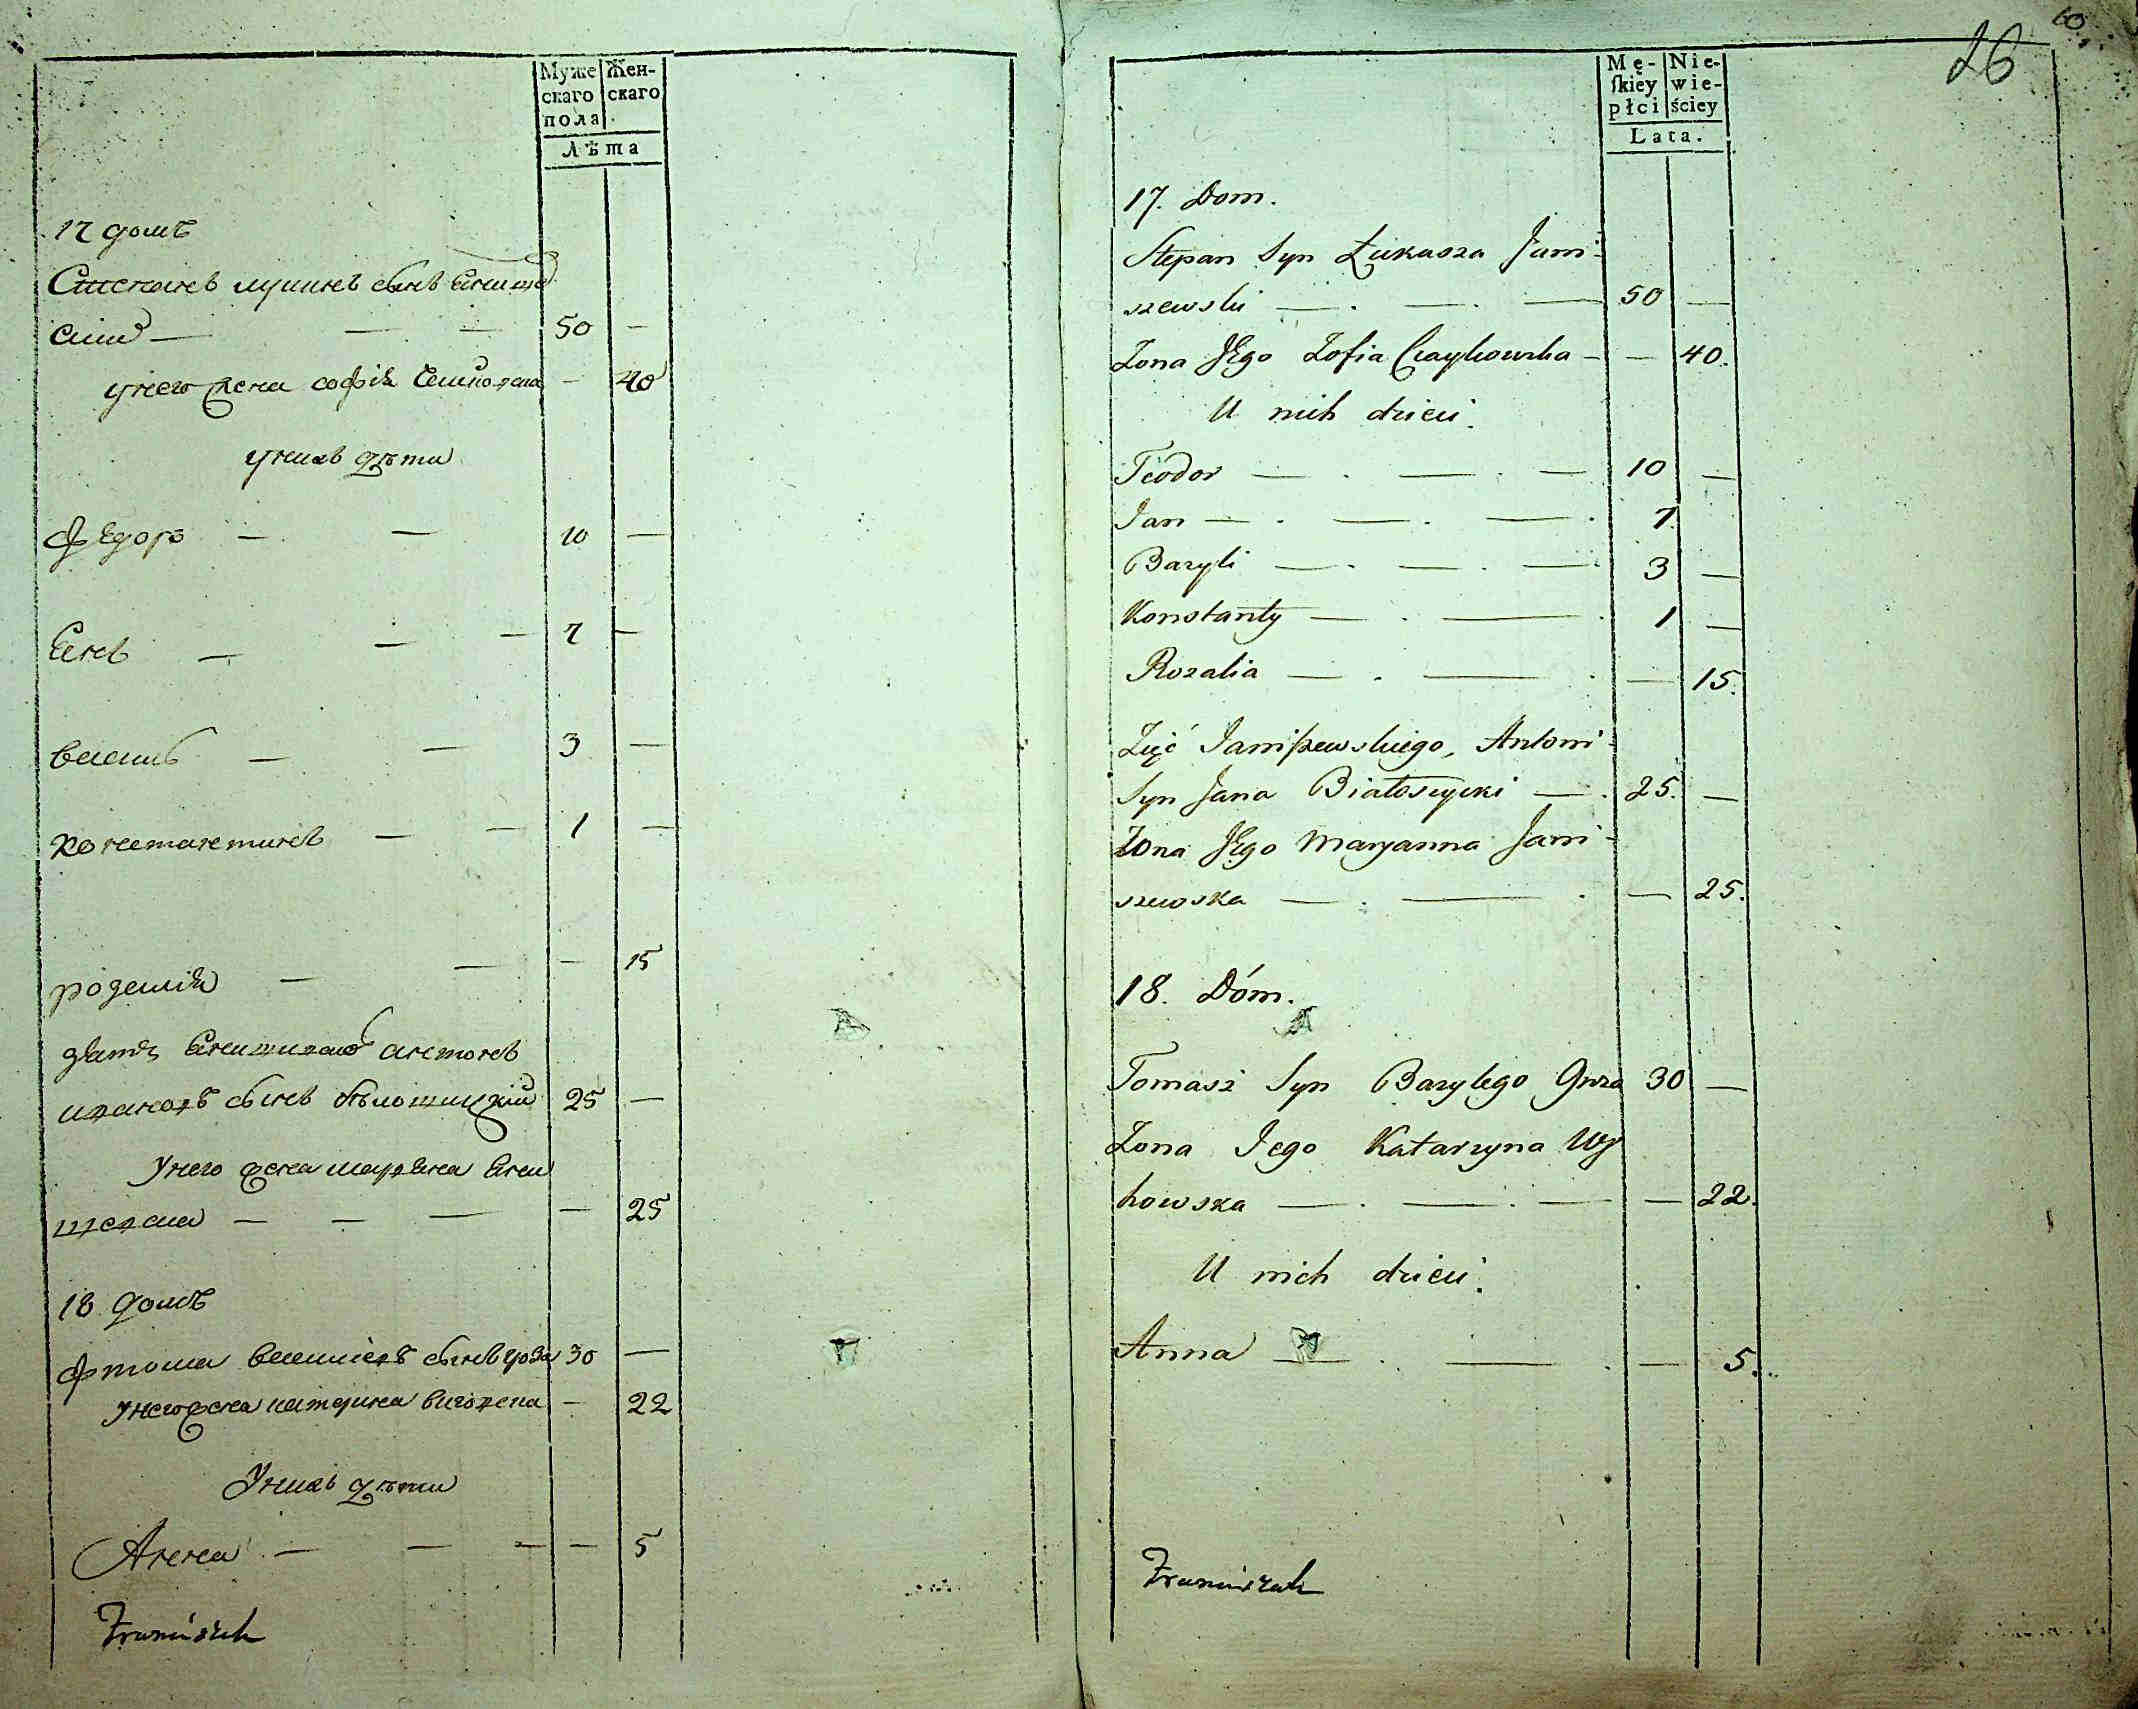 Муже Жен-
скаго скаго
пола
Лѣта
17 домъ
Степанъ лукинъ сынъ Янише
скій — — — 50 —
унего жена софія Чайковска — 40
унихъ дѣти
Федоръ — — 10 —
Янъ — — — 7 —
василь — — 3 —
константинъ — — 1 —
розалія — — — 15
зять Янишевскаго антонъ
ивановъ сынъ бѣлошицкій 25 —
Унего жена марьяна Яни
шевска — — — — 25
18 домъ
Фтома василіевъ сынъ гроза 30 —
Унего жена катерина виговска — 22
Унихъ дѣти
Анна — — — — 5
Franciszek
26
Mę- Nie-
skiey wie-
płci ściey
Lata.
17. Dom.
Stepan Syn Łukasza Jani-
szewski — . — . — 50 —
Żona JEgo Zofia Czaykowska — — 40.
U nich dzieci.
Teodor — . — . — 10 —
Jan — . — . — . 7.
Bazyli — . — . — 3 —
Konstanty — . — . 1 —
Rozalia — . — . — 15.
Zięć Janiszewskiego, Antoni
Syn Jana Białoszycki — . 25. —
Żona JEgo Maryanna Jani-
szewska — . — . — 25.
18. Dóm.
Tomasz Syn Bazylego Groza 30 —
Żona Jego Katarzyna Wy
howska — . — . — — 22.
U nich dzieci.
Anna — . — . — 5.
Franciszek